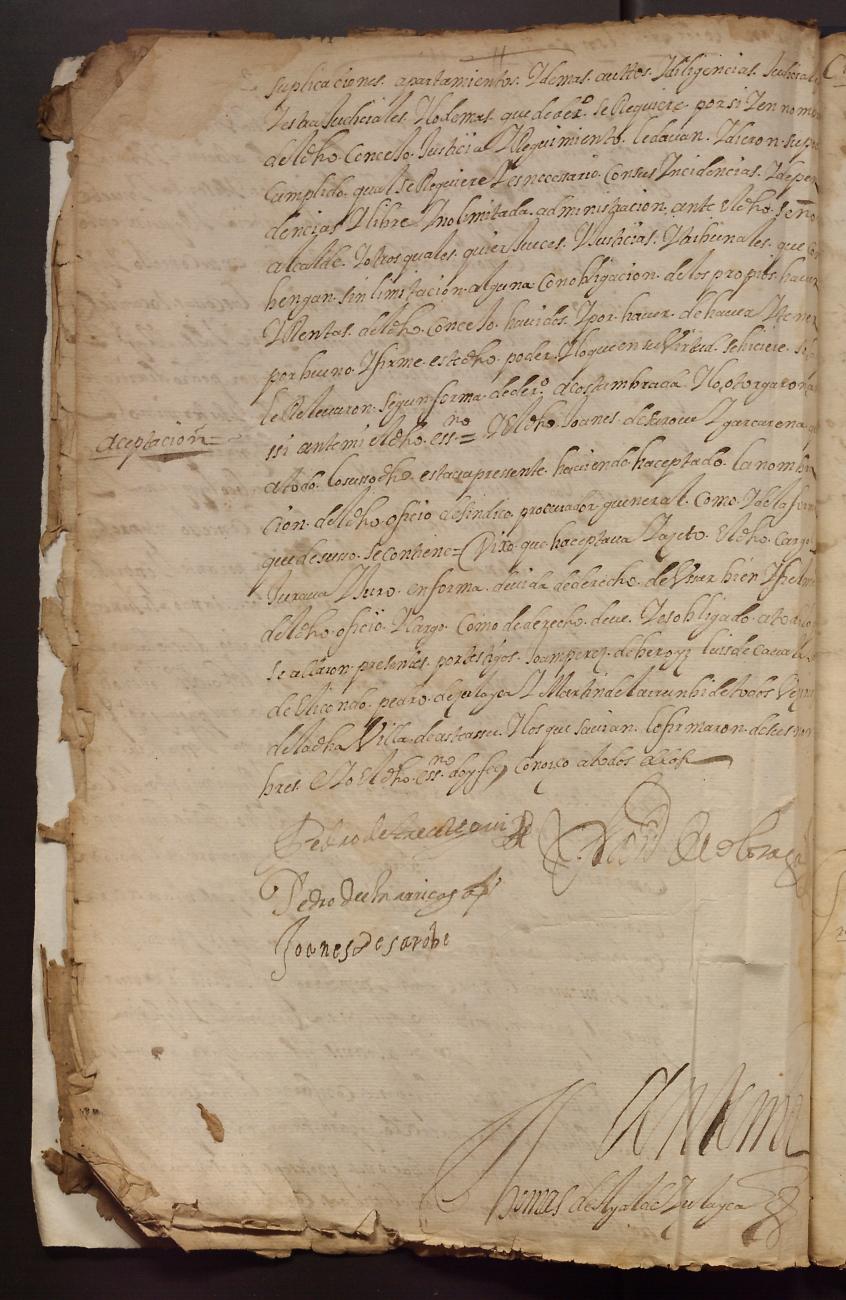 suplicaciones. apartamientos. Ydemas. auttos. Ydiligencias. Judiciales
Yestra Judiciales. Ylodemas. que de der.º se Requiere. por si Y en nom
del dho. Concejo. Justicia YReguimiento. le davan. Ydieron. su po
Cumplido. qual se Requiere Y es necesario. Con sus Yncidencias. Ydepen
dencias Ylibre Yno limitada. administracion. ante el dho. señor
alcalde. Yotros quales. quier Jueces. YJusticias. Ytribunales. que con
bengan. sin limitacion. alguna Con obligacion. de los propios. haver
YRentas. del dho. Concejo. havidos. Ypor haver. de haver Ytener
por bueno. Yfirme. este dho. poder. Ylo que en su Virtud. se hiciere.
le Relevaron. segun forma. de der.º acostumbrada. Ylo otorgaron a
ssi ante mi el dho. ess.no = Y el dho. Joanes. de sarove Y garcarena.
a todo. lo susso dho. estava pressente. haviendo haceptado. la nombra
cion. del dho. oficio de sindico. procurador. gueneral. Como. Y de la form
que de suso. se contiene = Dixo. que haceptava Y azeto. el dho. Cargo.
Aceptacion
Jurava YJuro. en forma. devida de derecho. de Usar bien Yfielm
del dho. oficio. Y cargo. Como de derecho. deve. Y es obligado. a todo lo
se allaron. presentes. por testigos. Joan perez. de beroyz luis de
de elicondo. pedro. de Y Martin de larrunbide todos Vezinos
de la dha Villa. de asteassu. Y los que savian. lo firmaron. de sus nom
bres. e Yo el dho. ess.no doy fee Conozco a todos ellos
Pedro de
Pedro de
Joanes de sarobe
Antemi
Thomas de Ayala e Zulayca